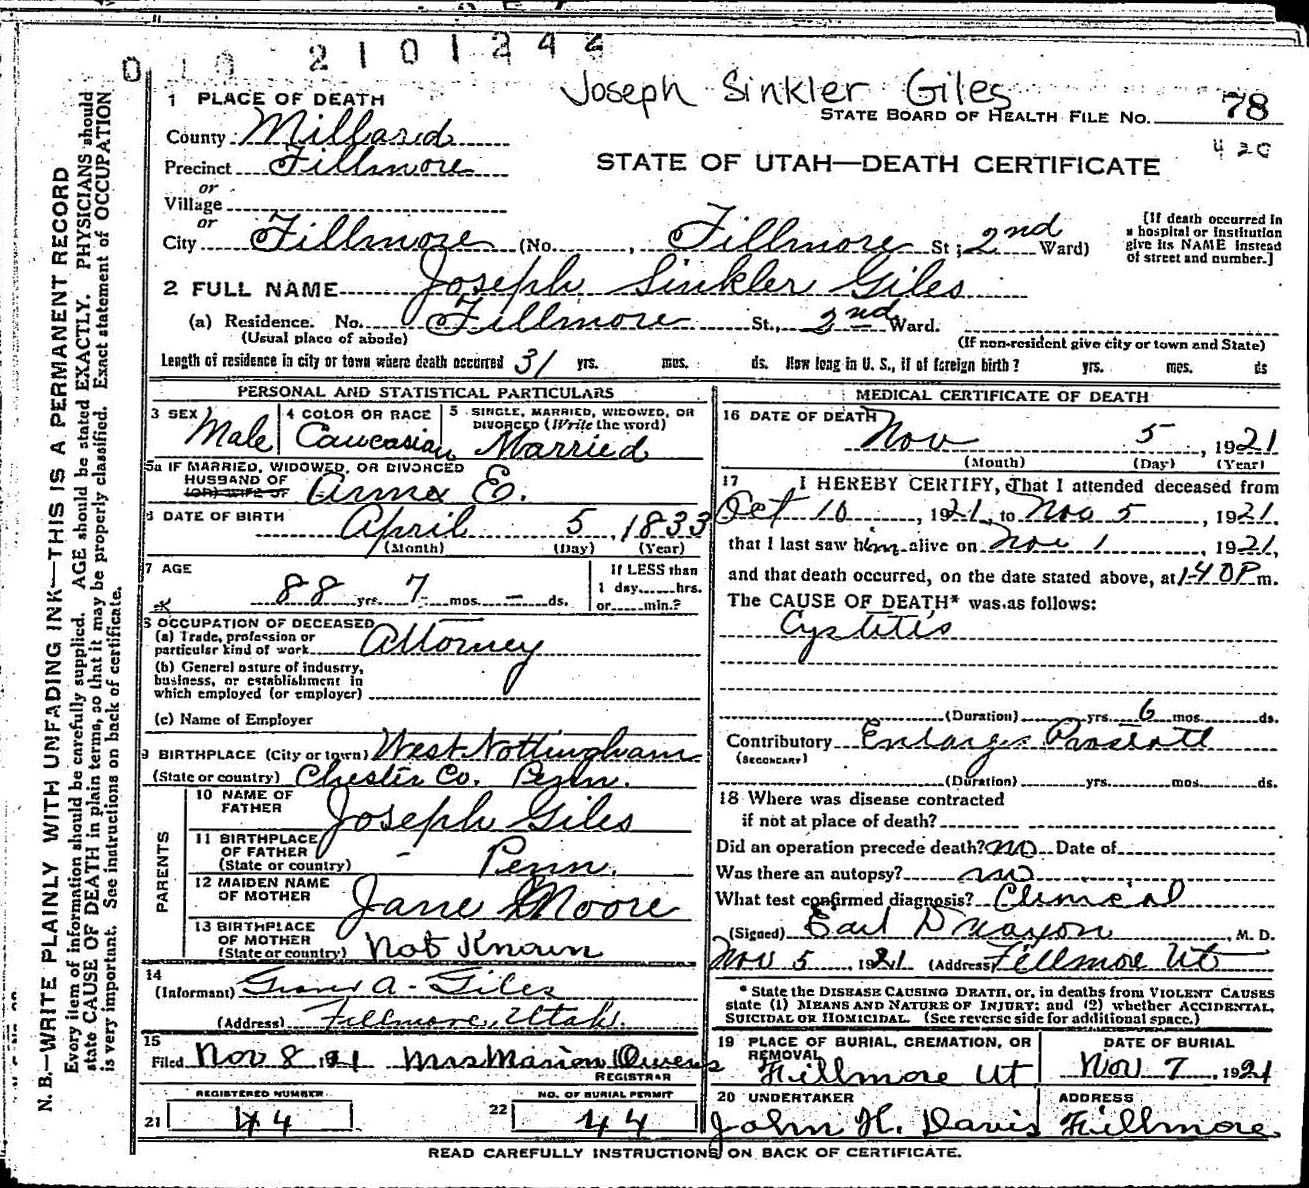 2101244
Joseph Sinkler Giles
1 PLACE OF DEATH
STATE BOARD OF HEALTH FILE No. 78
County Millard
420
Precinct Fillmore
STATE OF UTAH—DEATH CERTIFICATE
or
Village
or
City Fillmore (No. , Fillmore St ; 2nd Ward)
[If death occurred in
a hospital or institution
give its NAME instead
of street and number.]
2 FULL NAME Joseph Sinkler Giles
(a) Residence. No. Fillmore St., 2nd Ward.
(Usual place of abode) (If non-resident give city or town and State)
Length of residence in city or town where death occurred 31 yrs. mos. ds. How long in U. S., if of foreign birth? yrs. mos. ds
PERSONAL AND STATISTICAL PARTICULARS
3 SEX Male
4 COLOR OR RACE Caucasian
5 SINGLE, MARRIED, WIDOWED, OR
DIVORCED (Write the word)
Married
5a IF MARRIED, WIDOWED, OR DIVORCED
HUSBAND OF
(OR) WIFE OF
E.
6 DATE OF BIRTH
April 5, 1833
(Month) (Day) (Year)
7 AGE
88 yrs. 7 mos. – ds.
If LESS than
1 day......hrs.
or......min.?
8 OCCUPATION OF DECEASED
(a) Trade, profession or
particular kind of work Attorney
(b) General nature of industry,
business, or establishment in
which employed (or employer)
(c) Name of Employer
9 BIRTHPLACE (City or town) West Nottingham
(State or country) Chester Co. Penn.
PARENTS
10 NAME OF
FATHER Joseph Giles
11 BIRTHPLACE
OF FATHER
(State or country) – Penn.
12 MAIDEN NAME
OF MOTHER Jane Moore
13 BIRTHPLACE
OF MOTHER
(State or country) Not Known
14
(Informant) A. Giles
(Address) Fillmore, Utah.
15
Filed Nov 8 1921 Mrs Marion Owens
REGISTRAR
REGISTERED NUMBER
21 44
NO. OF BURIAL PERMIT
22 44
MEDICAL CERTIFICATE OF DEATH
16 DATE OF DEATH
Nov 5, 1921
(Month) (Day) (Year)
17 I HEREBY CERTIFY, That I attended deceased from
Oct 10, 1921, to Nov 5, 1921.
that I last saw him alive on Nov 1, 1921,
and that death occurred, on the date stated above, at 1-40 P m.
The CAUSE OF DEATH* was as follows:
Cystitis
(Duration) yrs. 6 mos. ds.
Contributory Enlarge Prostate
(SECONDARY)
(Duration) yrs. mos. ds.
18 Where was disease contracted
if not at place of death?
Did an operation precede death? no Date of
Was there an autopsy? no
What test confirmed diagnosis? Clinical
(Signed) , M. D.
Nov 5, 1921 (Address) Fillmore Ut
* State the DISEASE CAUSING DEATH, or, in deaths from VIOLENT CAUSES
state (1) MEANS AND NATURE OF INJURY; and (2) whether ACCIDENTAL,
SUICIDAL OR HOMICIDAL. (See reverse side for additional space.)
19 PLACE OF BURIAL, CREMATION, OR
REMOVAL
Fillmore Ut
DATE OF BURIAL
Nov 7, 1921
20 UNDERTAKER
John H. Davis
ADDRESS
Fillmore
READ CAREFULLY INSTRUCTIONS ON BACK OF CERTIFICATE.
N. B.—WRITE PLAINLY WITH UNFADING INK—THIS IS A PERMANENT RECORD
Every item of information should be carefully supplied. AGE should be stated EXACTLY. PHYSICIANS should
state CAUSE OF DEATH in plain terms, so that it may be properly classified. Exact statement of OCCUPATION
is very important. See instructions on back of certificate.